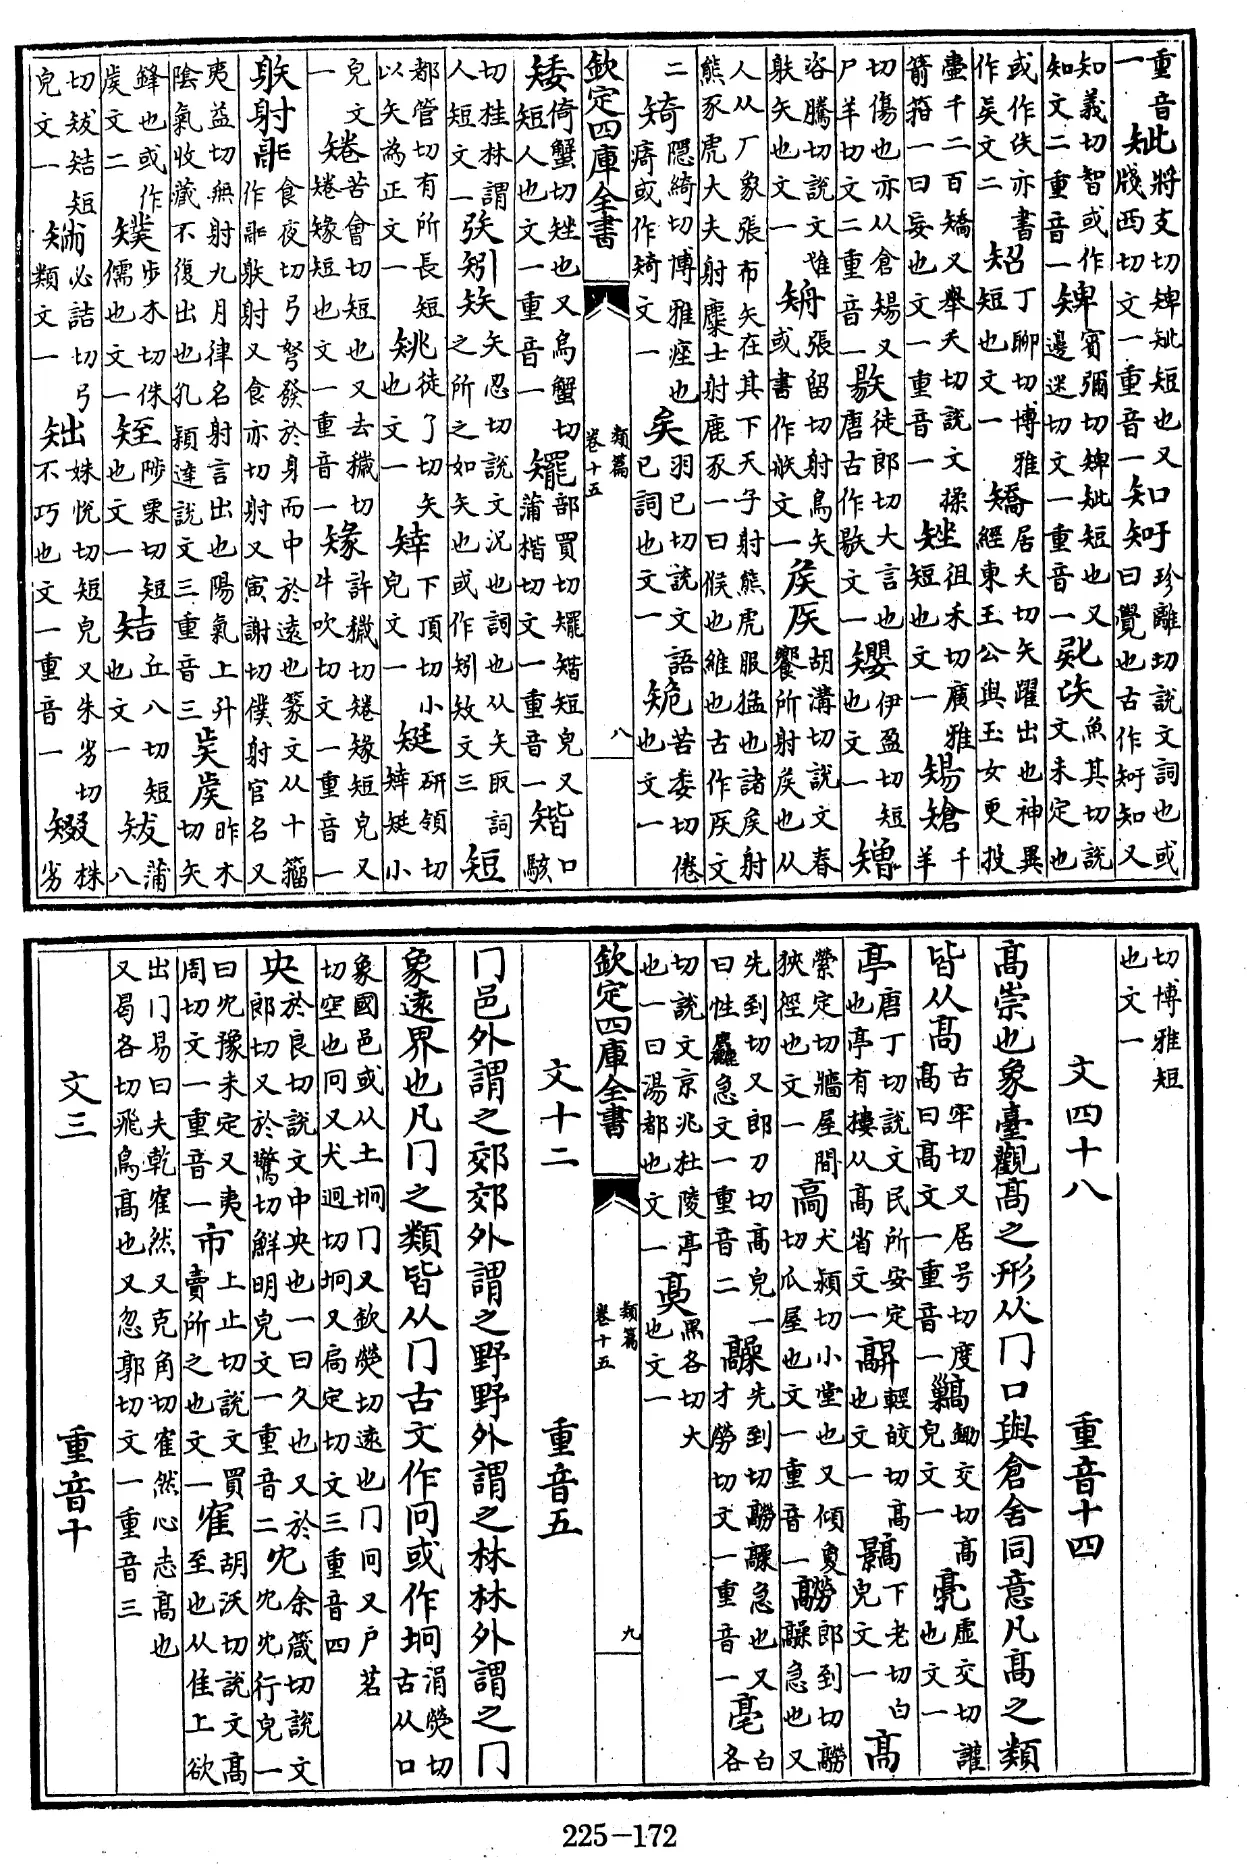 重音一𥏋將支切䂣𥏋短也又牋西切文一重音一知𥎿珍離切說文詞也或曰覺也古作𥎿知又
知義切智或作知文二重音一䂣賓彌切䂣𥏋短也又邊迷切文一重音一魚其切說文未定也
或作亦書作文二丁聊切博雅短也文一矯居夭切矢躍出也神異經東王公與玉女更投
壷千二百矯又舉夭切說文揉箭箝一曰妄也文一重音一矬徂禾切廣雅短也文一𥏫千羊
切傷也亦从倉𥏫又尸羊切文二重音一徒郎切大言也唐古作文一伊盈切短也文一矰
咨騰切說文惟躲矢也文一張留切射鳥矢或書作文一矦𠂋胡溝切說文春饗所射矦也从
人从厂象張布矢在其下天子射熊虎服猛也諸矦射熊豕虎大夫射麋士射鹿豕一曰候也維也古作𠂋文
二𥏜隱綺切博雅痤也痛或作𥏜文一矣羽已切說文語已詞也文一苦委切倦也文一
欽定四庫全書 類篇 卷十五 八
矮倚蟹切矬也又烏蟹切短人也文一重音一矲部買切矲䂖短皃又蒲楷切文一重音一䂖口駭
切桂林謂人短文一矤矧矢忍切說文況也詞也从矢取詞之所之如矢也或作矧文三短
都管切有所長短以矢為正文一徒了切矢也文一䂔下頂切小皃文一研領切䂔小
皃文一苦會切短也又去穢切短也文一重音一許穢切短皃又牛吹切文一重音一
䠶射食夜切弓弩發於身而中於遠也篆文从寸籀作䠶射又食亦切射又寅謝切僕射官名又
夷益切無射九月律名射言出也陽氣上升陰氣收藏不復出也孔穎達說文三重音三昨木切矢
鋒也或作文二步木切侏儒也文一陟栗切短也文一丘八切短也文一蒲八
切短皃文一必詰切弓類文一䂐姝悅切短皃又朱劣切不巧也文一重音一株劣
切博雅短也文一
文四十八 重音十四
髙崇也象臺觀髙之形从冂口與倉舍同意凡髙之類
皆从髙古牢切又居号切度髙曰髙文一重音一鋤交切髙皃文一虛交切讙也文一
亭唐丁切說文民所安定也亭有樓从髙省文一輕皎切髙也文一下老切白皃文一髙
縈定切牆屋間狹徑也文一髙犬潁切小堂也又傾夐切瓜屋也文一重音一郎到切急也又
先到切又郎刀切髙皃一曰性急文一重音二先到切急也又才勞切文一重音一亳白各
切說文京兆杜陵亭也一曰湯都也文一黑各切大也文一
欽定四庫全書 類篇 卷十五 九
文十二 重音五
冂邑外謂之郊郊外謂之野野外謂之林林外謂之冂
象遠界也凡冂之類皆从冂古文作冋或作坰涓熒切古从口
象國邑或从土坰冂又欽熒切遠也冂冋又戶茗切空也冋又犬迥切坰又扃定切文三重音四
央於良切說文中央也一曰久也又於郎切又於驚切鮮明皃文一重音二冘余箴切說文冘冘行皃一
曰冘豫未定又夷周切文一重音一市上止切說文買賣所之也文一隺胡沃切說文髙至也从隹上欲
出冂易曰夫乾隺然又克角切隺然心志髙也又曷各切飛鳥髙也又忽郭切文一重音三
文三 重音十
225-172